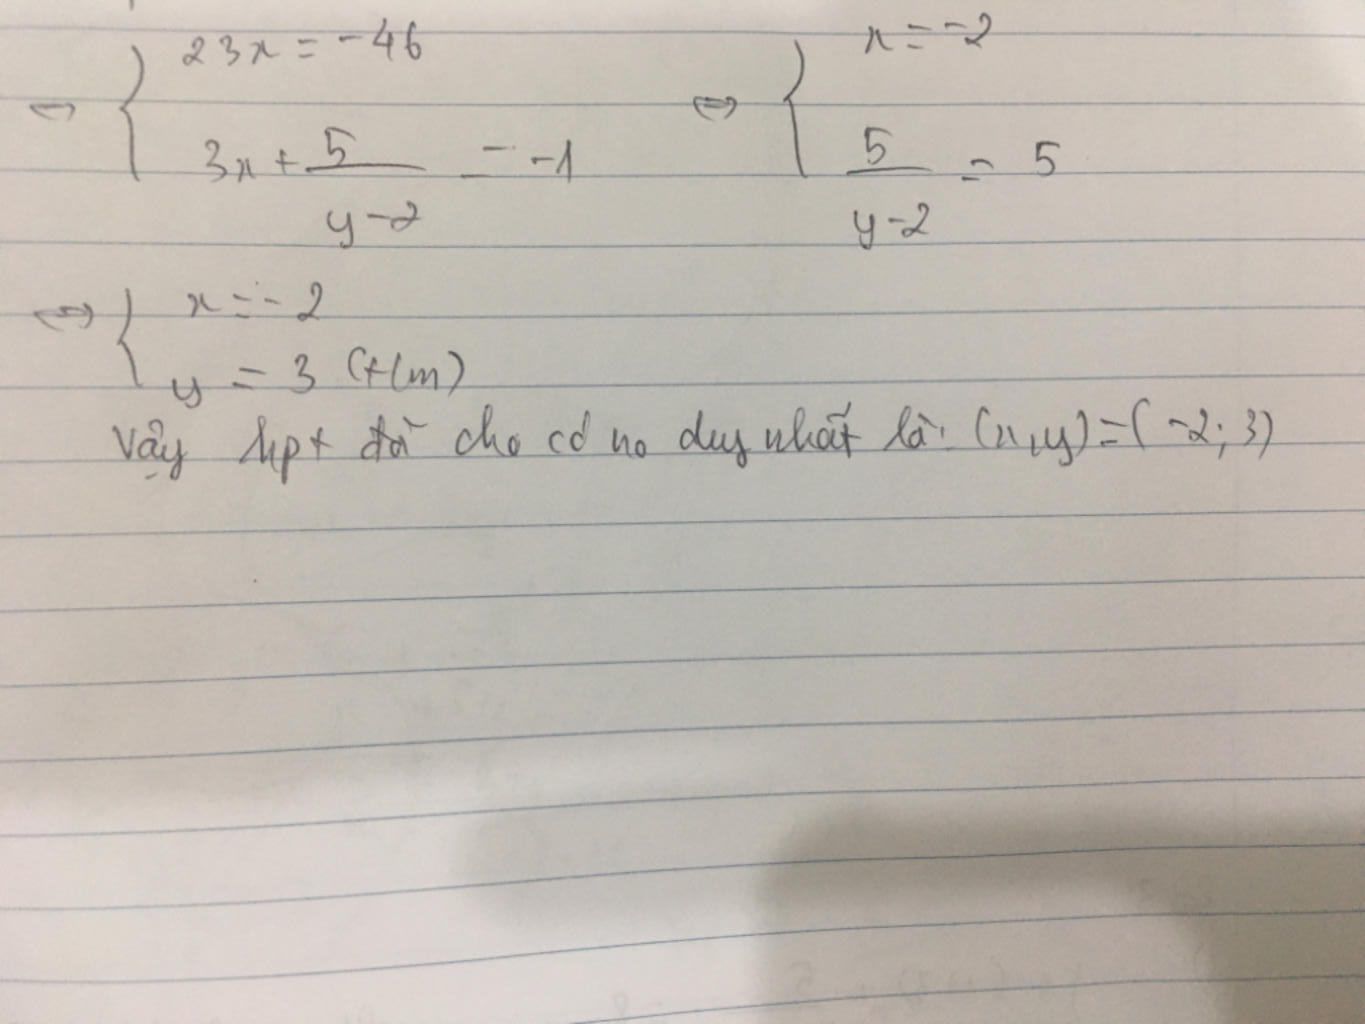 ⇔ { 23x = -46 ⇔ { x = -2
3x + 5/(y-2) = -1 5/(y-2) = 5
⇔ { x = -2
y = 3 (t/m)
Vậy hpt đã cho có no duy nhất là: (x,y)=(-2; 3)